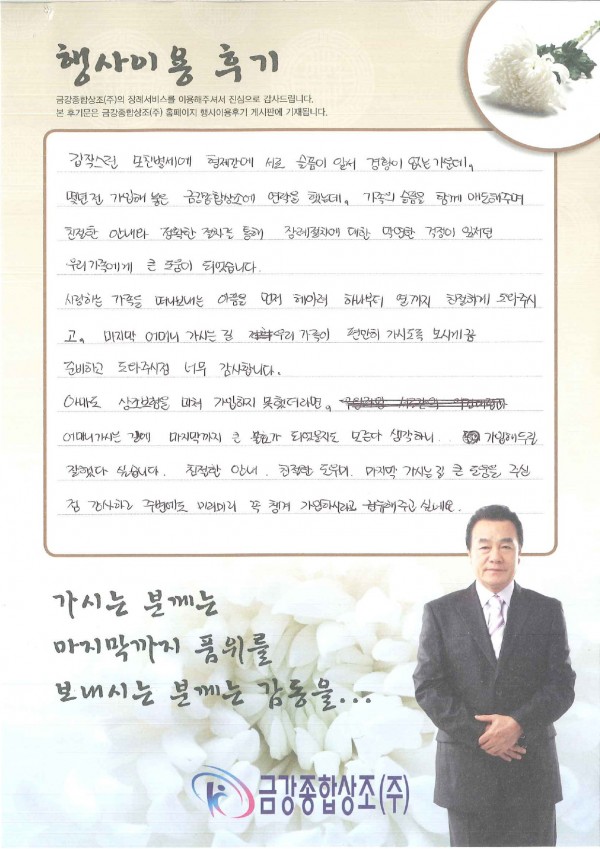 행사이용 후기
금강종합상조(주)의 장례서비스를 이용해주셔서 진심으로 감사드립니다.
본 후기문은 금강종합상조(주) 홈페이지 행사이용후기 게시판에 기재됩니다.
갑작스런 모친병세에 형제간에 서로 슬픔이 앞서 경황이 없는가운데,
몇년전 가입해 놓은 금강종합상조에 연락을 했는데, 가족의 슬픔을 함께 애도해주며
친절한 안내와 정확한 절차를 통해 장례절차에 대한 막연한 걱정이 앞섰던
우리가족에게 큰 도움이 되었습니다.
사랑하는 가족을 떠나보내는 아픔을 먼저 헤아려 하나부터 열까지 친절하게 도와주시
고, 마지막 어머니 가시는 길 우리 가족이 편안히 가시도록 모시게끔
준비하고 도와주시점 너무 감사합니다.
아마도 상조보험을 미처 가입하지 못했더라면,
어머니가시는 길에 마지막까지 큰 불효가 되었을지도 모른다 생각하니... 가입해두길
잘했다 싶습니다. 친절한 안내, 친절한 도우미, 마지막 가시는길 큰 도움을 주신
점 감사하고 주변에도 미리미리 꼭 챙겨 가입하시라고 해주고 싶네요.
가시는 분께는
마지막까지 품위를
보내시는 분께는 감동을...
금강종합상조(주)